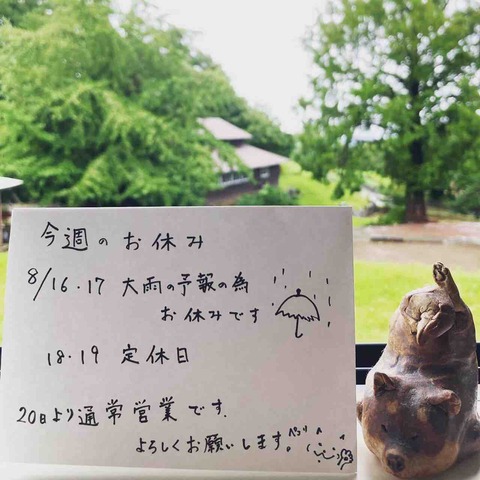 今週のお休み
8/16.17 大雨の予報の為
お休みです
18.19 定休日
20日より通常営業です.
よろしくお願いします。ペコリ